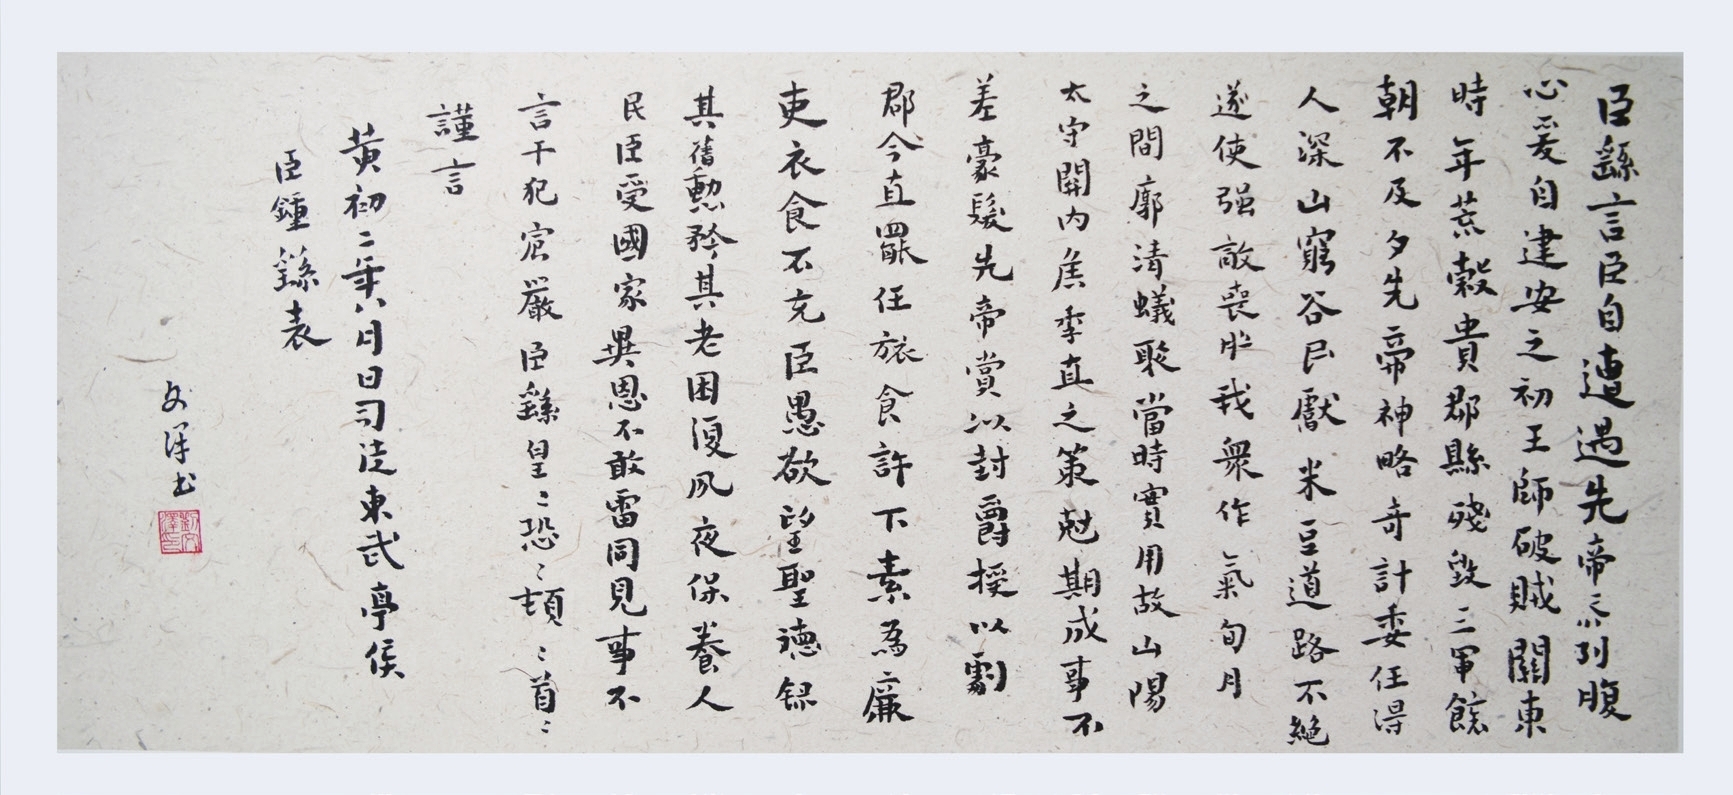 臣繇言臣自遭遇先帝忝列腹
心爰自建安之初王師破賊關東
時年荒穀貴郡縣殘毀三軍餽
朝不及夕先帝神略奇計委任得
人深山窮谷民獻米豆道路不絕
遂使强敵喪膽我衆作氣旬月
之間廓清蟻聚當時實用故山陽
太守關內侯季直之策尅期成事不
差豪髮先帝賞以封爵授以劇
郡今直罷任旅食許下素為廉
吏衣食不充臣愚欲望聖德錄
其舊勳矜其老困復夙夜保養人
民臣受國家異恩不敢雷同見事不
言干犯宸嚴臣繇皇〻恐〻頓〻首〻
謹言
黃初二年八月日司徒東武亭侯
臣鍾繇表
文澤书